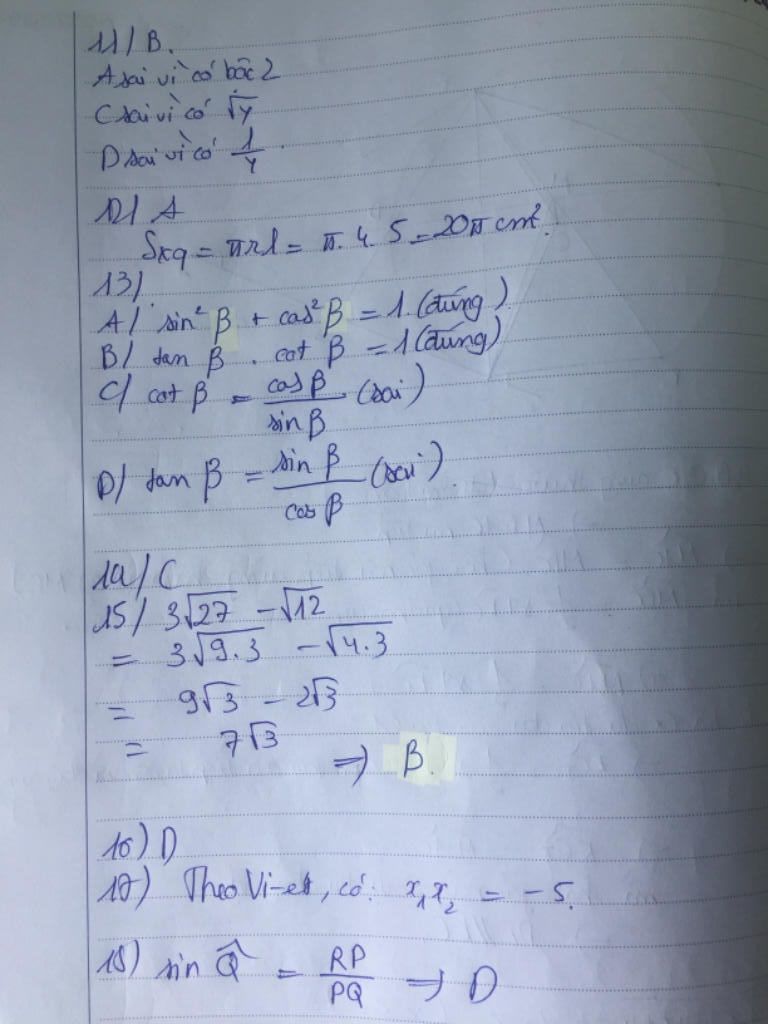 11/ B.
A sai vì có bậc 2
C sai vì có √y
D sai vì có 1/y
12/ A
Sxq = πrl = π. 4. 5 = 20π cm².
13/
A/ sin² β + cos² β = 1. (đúng)
B/ tan β . cot β = 1 (đúng)
C/ cot β = cosβ/sinβ (sai)
D/ tan β = sin β/cos β (sai).
14/ C
15/ 3√27 - √12
= 3√9.3 - √4.3
= 9√3 - 2√3
= 7√3 => B.
16) D
17) Theo Vi-et, có: x₁x₂ = -5.
18) sin Q̂ = RP/PQ => D